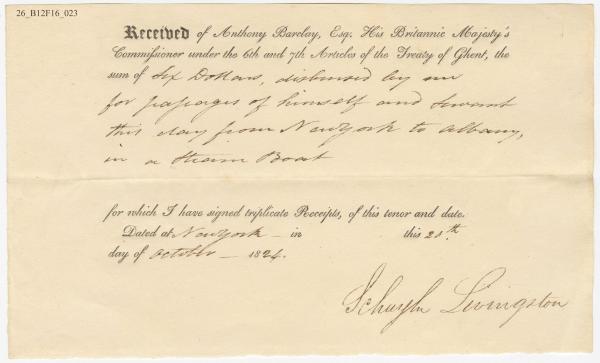 26_B12F16_023
Received of Anthony Barclay, Esq. His Britannic Majesty's
Commissioner under the 6th and 7th Articles of the Treaty of Ghent, the
sum of Six Dollars, disbursed by me
for passages of himself and Servant
this day from New York to Albany,
in a Steam Boat
for which I have signed triplicate Receipts, of this tenor and date.
Dated at New York — in this 28th.
day of October — 1824.
Schuyler Livingston